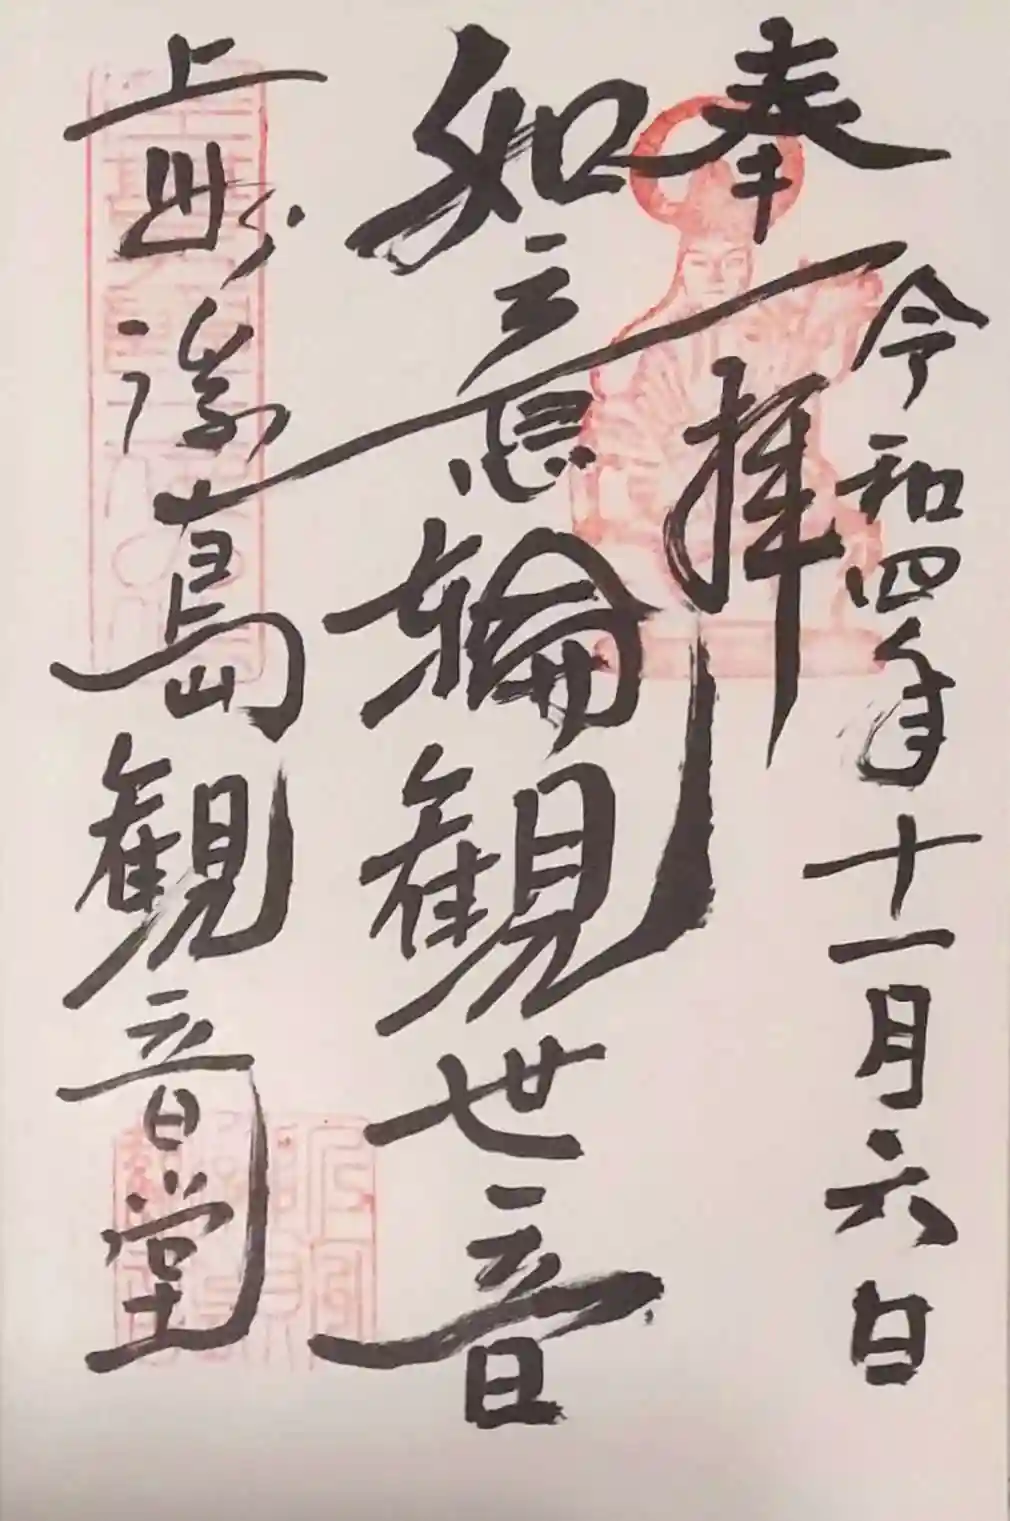 奉拝
令和四年十一月六日
如意輪観世音
上
島観音堂